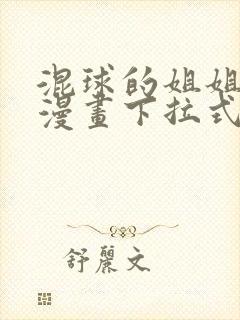 混球的姐姐
漫畫下拉式
舒麗文